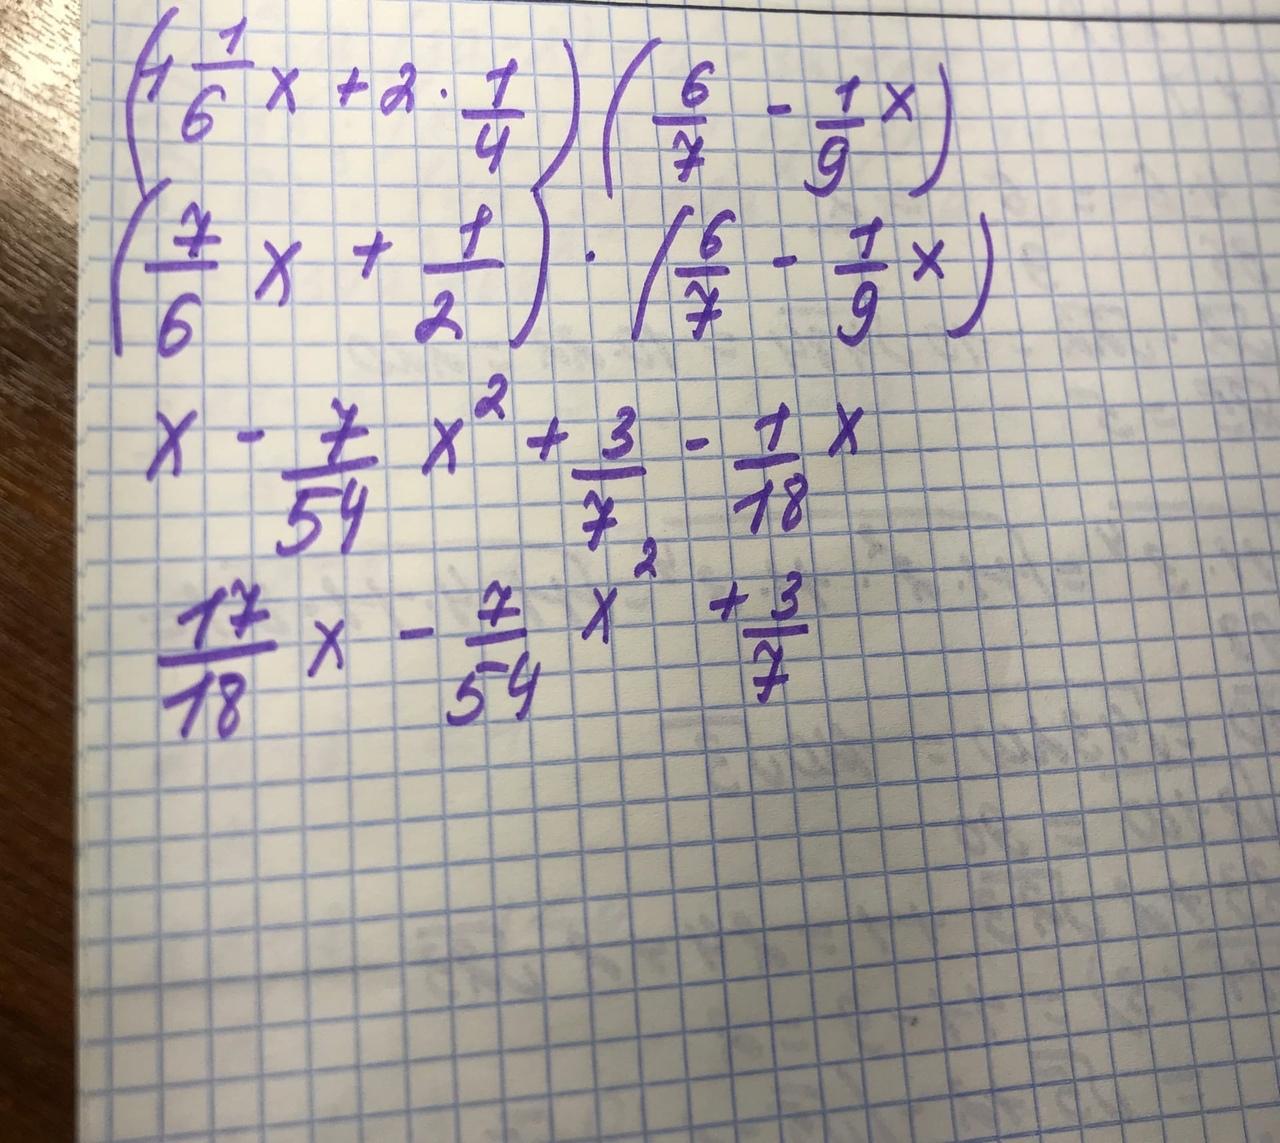 (1 1/6 x + 2 · 1/4) (6/7 - 1/9 x)
(7/6 x + 1/2) · (6/7 - 1/9 x)
x - 7/54 x² + 3/7 - 1/18 x
17/18 x - 7/54 x² + 3/7